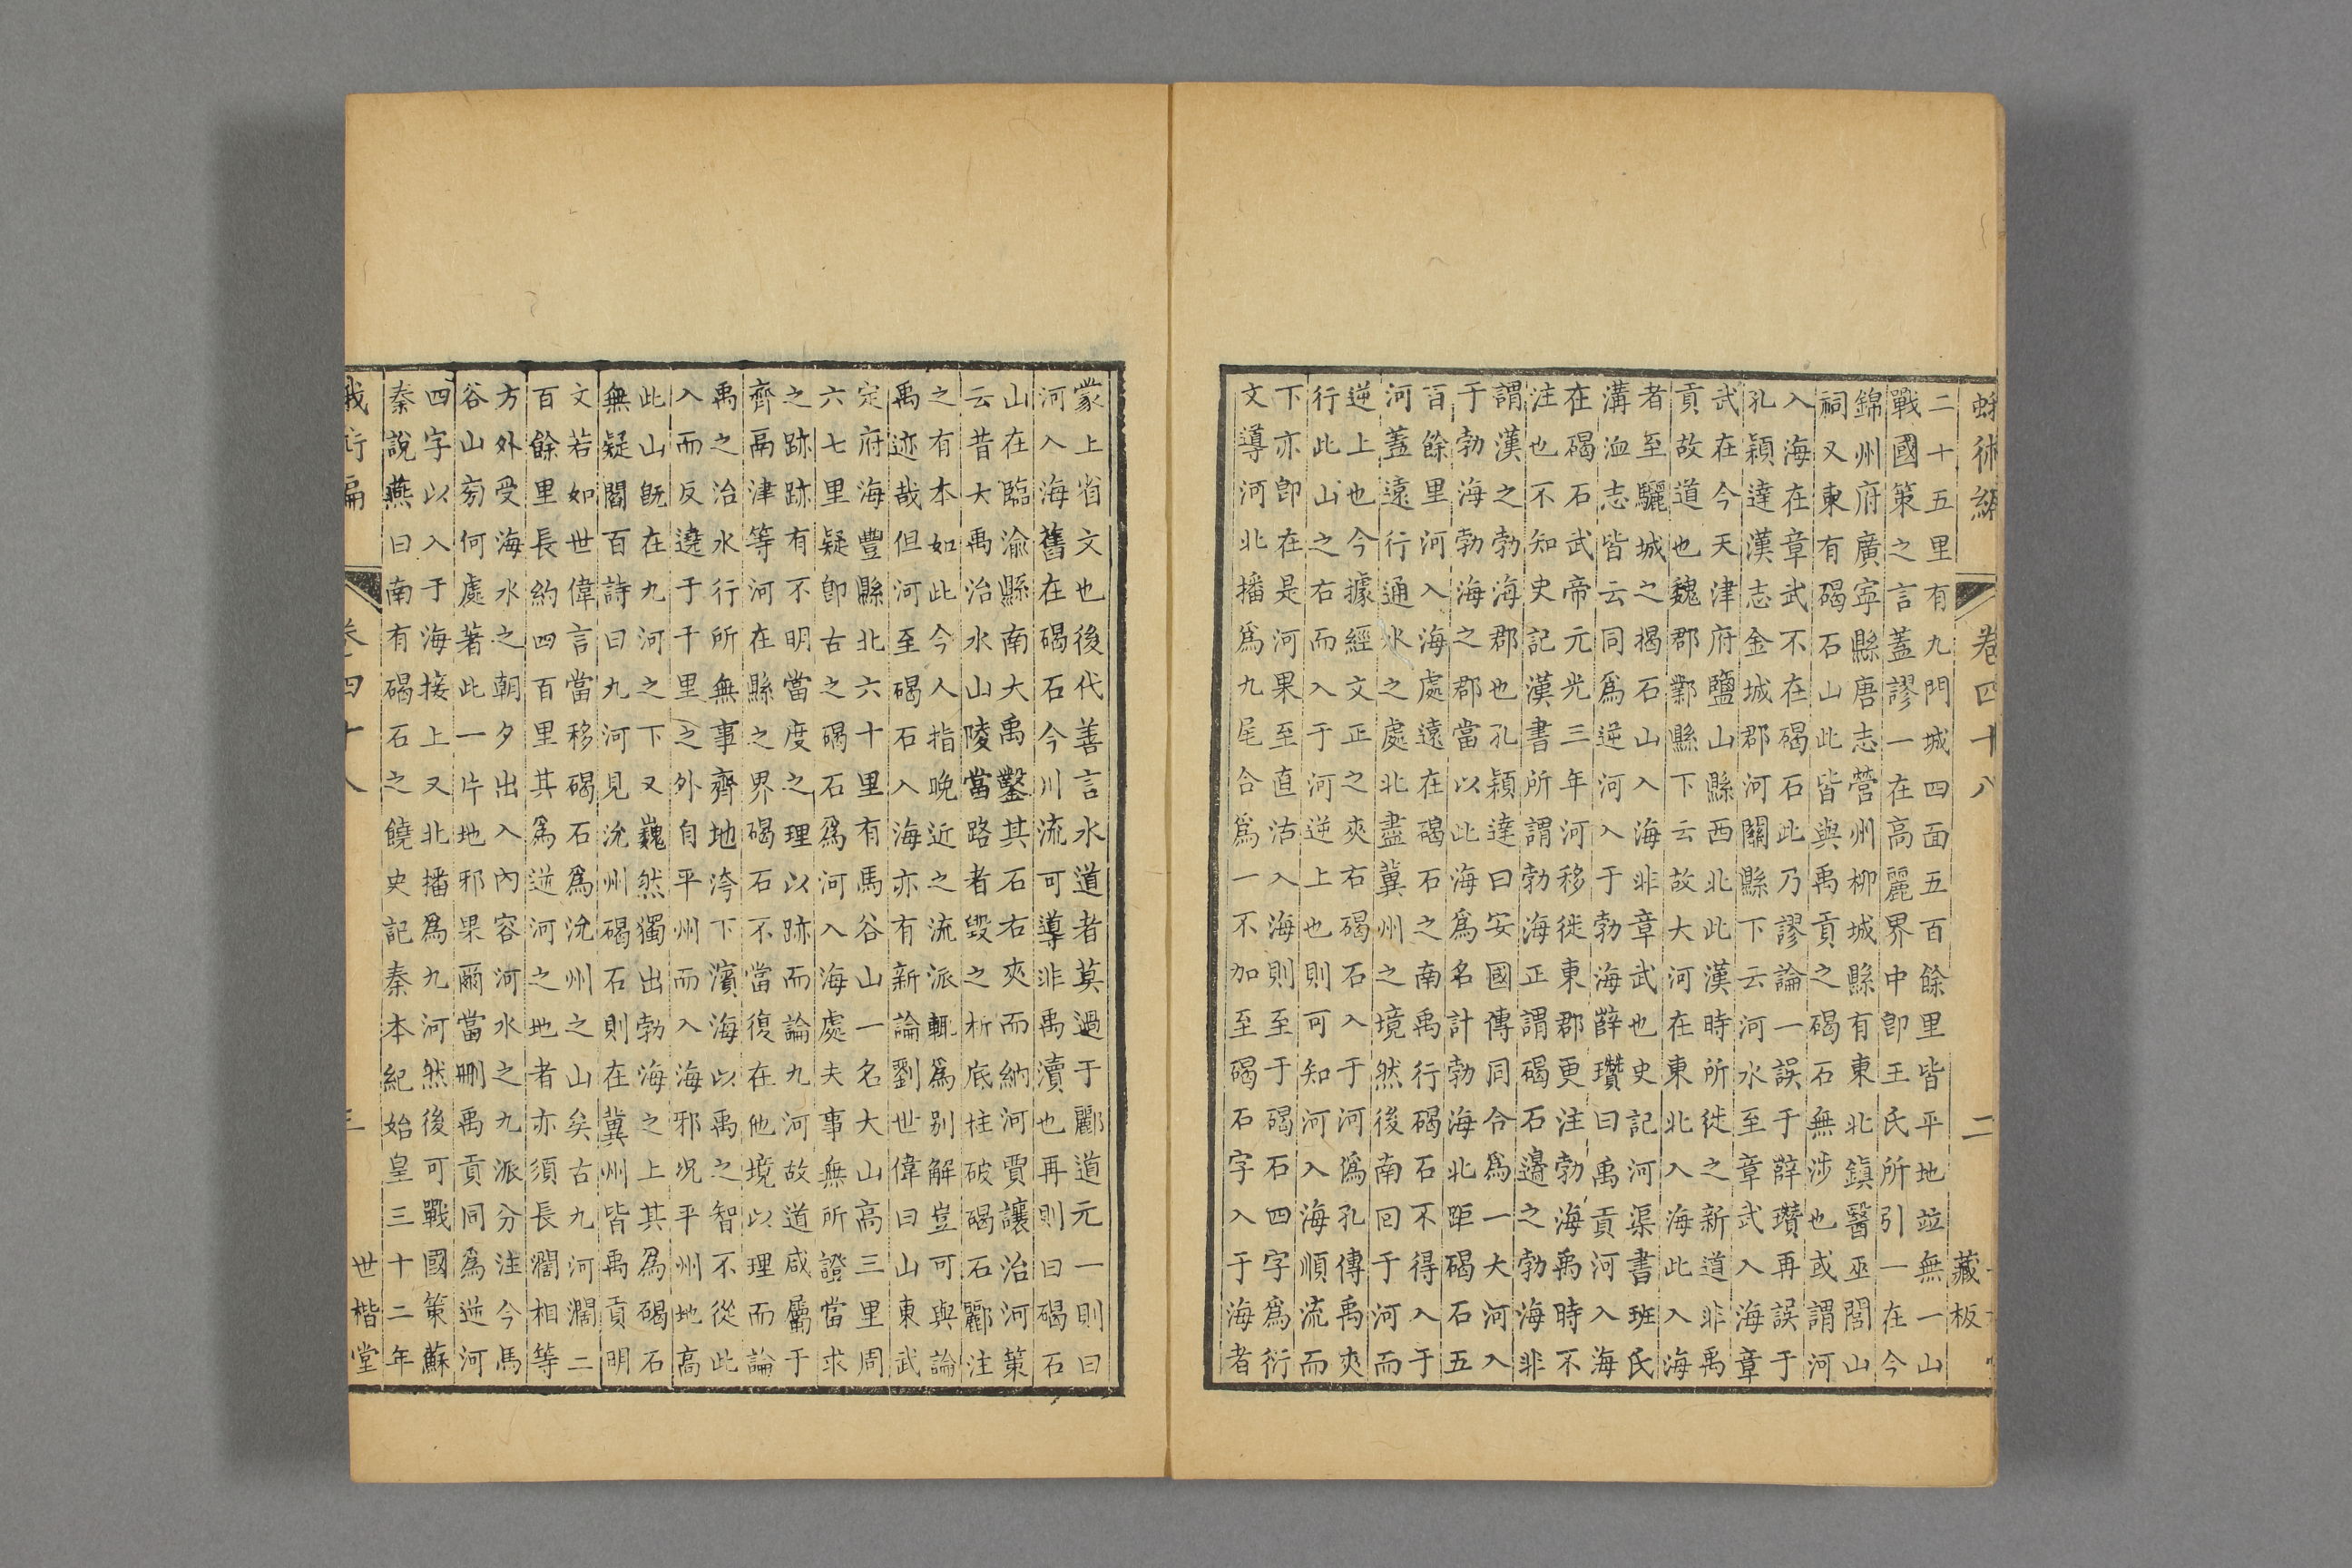 蛾術編 卷四十八 二 藏板
二十五里有九門城四面五百餘里皆平地竝無一山
戰國策之言蓋謬一在高麗界中卽王氏所引一在今
錦州府廣寧縣唐志營州柳城縣有東北鎭醫巫閭山
祠又東有碣石山此皆與禹貢之碣石無涉也或謂河
入海在章武不在碣石此乃謬論一誤于薛瓚再誤于
孔穎達漢志金城郡河關縣下云河水至章武入海章
武在今天津府鹽山縣西北此漢時所徙之新道非禹
貢故道也魏郡鄴縣下云故大河在東北入海此入海
者至驪城之揭石山入海非章武也史記河渠書班氏
溝洫志皆云同爲逆河入于勃海薛瓚曰禹貢河入海
在碣石武帝元光三年河移徙東郡更注勃海禹時不
注也不知史記漢書所謂勃海正謂碣石邊之勃海非
謂漢之勃海郡也孔穎達曰安國傳同合爲一大河入
于勃海勃海之郡當以此海爲名計勃海北距碣石五
百餘里河入海處遠在碣石之南禹行碣石不得入于
河蓋遠行通水之處北盡冀州之境然後南回于河而
逆上也今據經文正之夾右碣石入于河僞孔傳禹夾
行此山之右而入于河逆上也則可知河入海順流而
下亦卽在是河果至直沽入海則至于碣石四字爲衍
文導河北播爲九尾合爲一不加至碣石字入于海者
蒙上省文也後代善言水道者莫過于酈道元一則曰
河入海舊在碣石今川流可導非禹瀆也再則曰碣石
山在臨渝縣南大禹鑿其石右夾而納河賈讓治河策
云昔大禹治水山陵當路者毀之析底柱破碣石酈注
之有本如此今人指晩近之流派輒爲别解豈可與論
禹迹哉但河至碣石入海亦有新論劉世偉曰山東武
定府海豐縣北六十里有馬谷山一名大山高三里周
六七里疑卽古之碣石爲河入海處夫事無所證當求
之跡跡有不明當度之理以跡而論九河故道咸屬于
齊鬲津等河在縣之界碣石不當復在他境以理而論
禹之治水行所無事齊地洿下濱海以禹之智不從此
入而反遶于千里之外自平州而入海邪况平州地高
此山旣在九河之下又巍然獨出勃海之上其爲碣石
無疑閻百詩曰九河見沇州碣石則在冀州皆禹貢明
文若如世偉言當移碣石爲沇州之山矣古九河濶二
百餘里長約四百里其爲逆河之地者亦須長濶相等
方外受海水之朝夕出入內容河水之九派分注今馬
谷山旁何處著此一片地邪果爾當刪禹貢同爲逆河
四字以入于海接上又北播爲九河然後可戰國策蘇
秦說燕曰南有碣石之饒史記秦本紀始皇三十二年
蛾術編 卷四十八 三 世楷堂